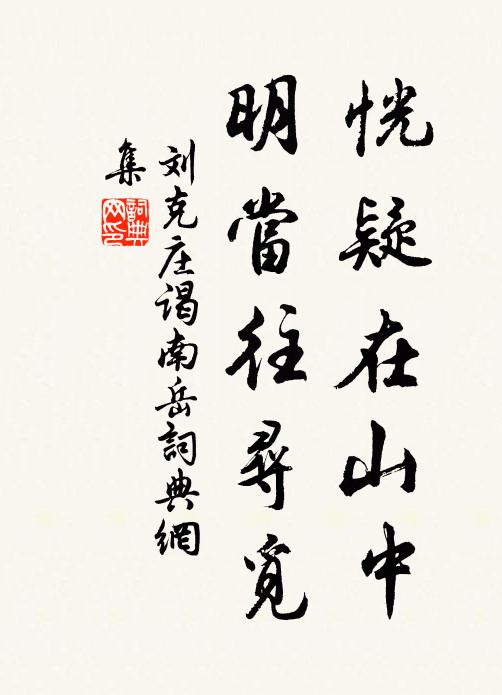 恍疑在山中
明當往尋覓
刘克庄谒南岳詞典網
集
詞典
网印